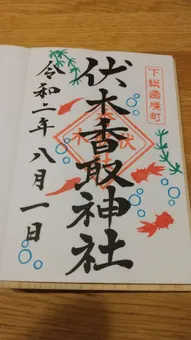 下総國境町
伏木香取神社
令和二年八月一日